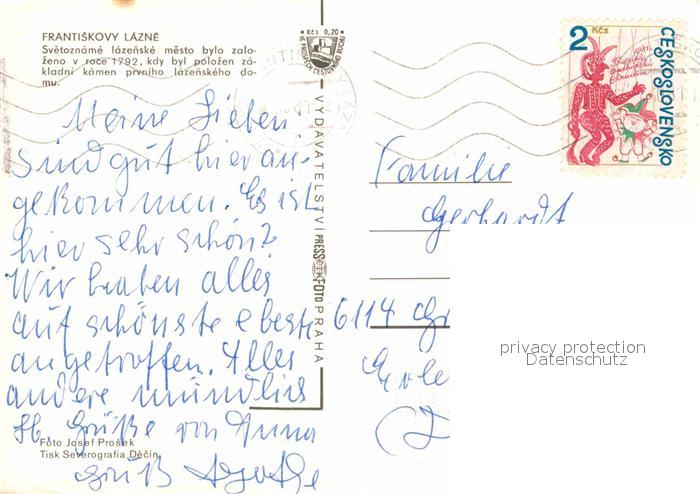 FRANTIŠKOVY LÁZNĚ
Světoznámé lázeňské město bylo zalo-
ženo v roce 1792, kdy byl položen zá-
kladní kámen prvního lázeňského do-
mu.
Meine Lieben
Sind gut hier an-
gekommen. Es ist
hier sehr schön?
Wir haben alles
auf schönste + beste
angetroffen. Alles
andere mündlich
Hz. Grüße von Anna
Gruß
Foto Josef Prošek
Tisk Severografia Děčín
Kčs 0,20
VE PROSPĚCH CESTOVNÍHO RUCHU
VYDAVATELSTVÍ PRESSFOTO PRAHA
2 Kčs
ČESKOSLOVENSKO
Familie
Gerhardt
6114 Gr
Erle
privacy protection
Datenschutz